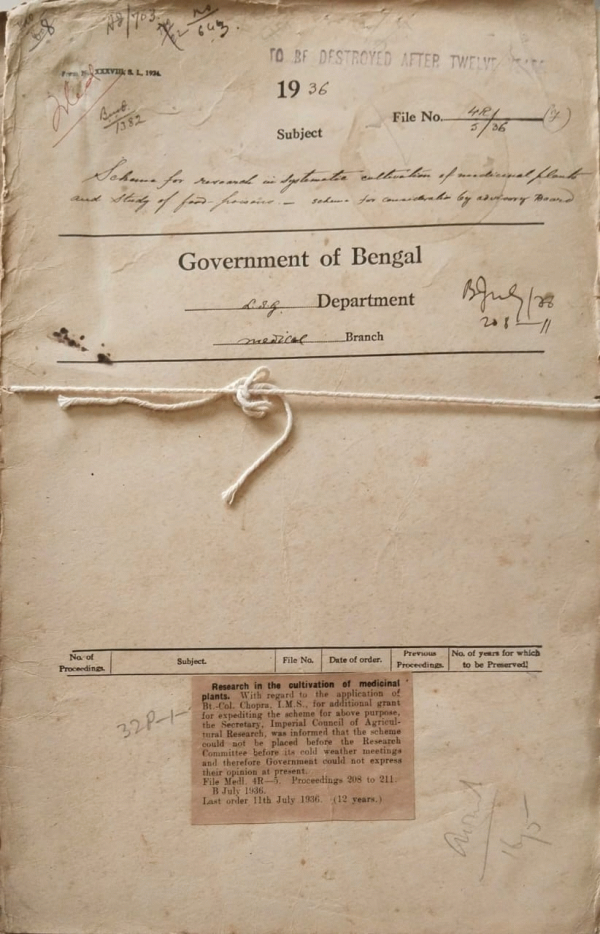 TO BE DESTROYED AFTER TWELVE YEARS
XXXVIII, S. I., 1934.
1936
File No. 4R/5/36
Subject
Scheme for research in systematic cultivation of medicinal plants
and study of food poisons – scheme for consideration by advisory Board
Government of Bengal
L.S.G. Department
medical Branch
B July/36
208–11
No. of Proceedings.
Subject.
File No.
Date of order.
Previous Proceedings.
No. of years for which to be Preserved.
Research in the cultivation of medicinal
plants. With regard to the application of
Bt.-Col. Chopra, I.M.S., for additional grant
for expediting the scheme for above purpose,
the Secretary, Imperial Council of Agricul-
tural Research, was informed that the scheme
could not be placed before the Research
Committee before its cold weather meetings
and therefore Government could not express
their opinion at present.
File Medl. 4R—5. Proceedings 208 to 211.
B July 1936.
Last order 11th July 1936. (12 years.)
32P-1-